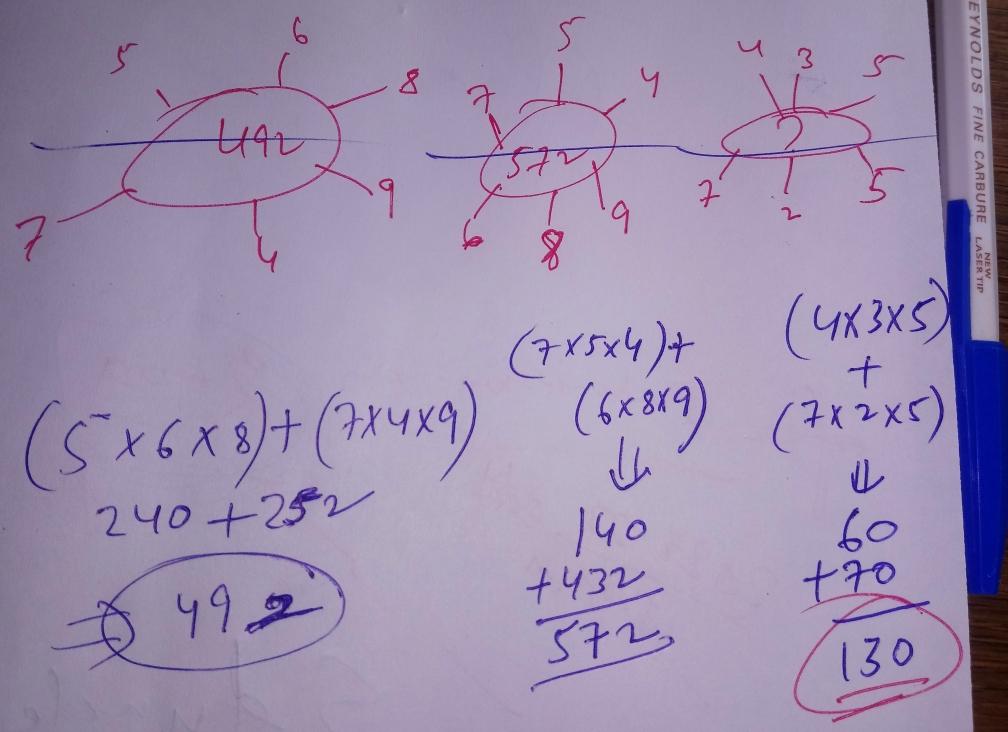 5 6 8
492
7 4 9
7 5 4
572
6 8 9
4 3 5
?
7 2 5
(5 × 6 × 8) + (7×4×9)
240 + 252
⇒ 492
(7×5×4)+
(6×8×9)
⇓
140
+432
572
(4×3×5)
+
(7×2×5)
⇓
60
+70
130
REYNOLDS FINE CARBURE
NEW
LASER TIP